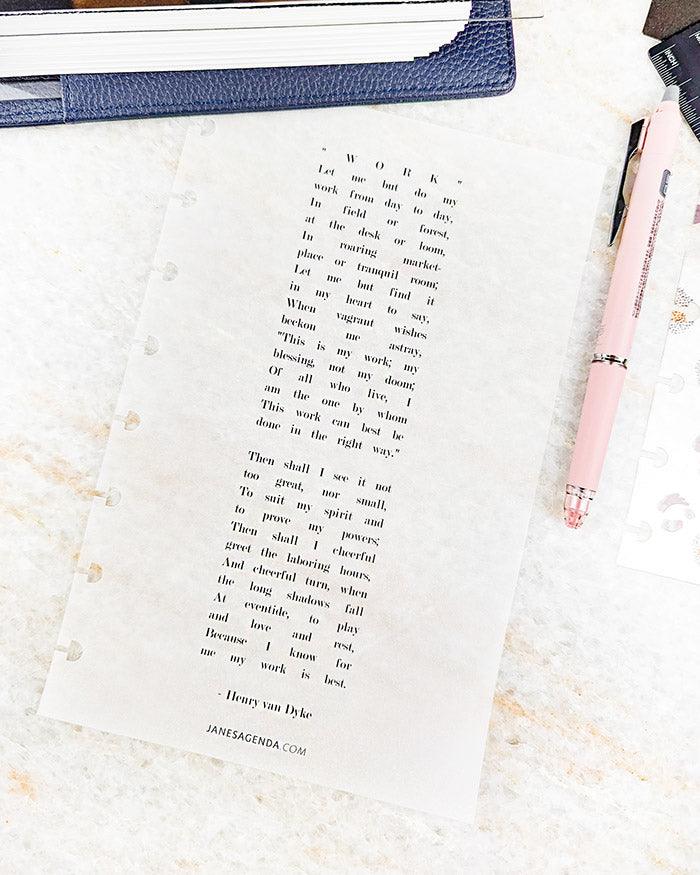 " W O R K "
Let me but do my
work from day to day,
In field or forest,
at the desk or loom,
In roaring market-
place or tranquil room;
Let me but find it
in my heart to say,
When vagrant wishes
beckon me astray,
"This is my work; my
blessing, not my doom;
Of all who live, I
am the one by whom
This work can best be
done in the right way."
Then shall I see it not
too great, nor small,
To suit my spirit and
to prove my powers;
Then shall I cheerful
greet the laboring hours,
And cheerful turn, when
the long shadows fall
At eventide, to play
and love and rest,
Because I know for
me my work is best.
- Henry van Dyke
JANESAGENDA.COM
INCH